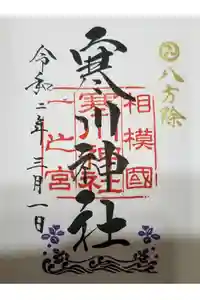 八方除
相模國
一之宮
寒川神社
令和二年三月一日